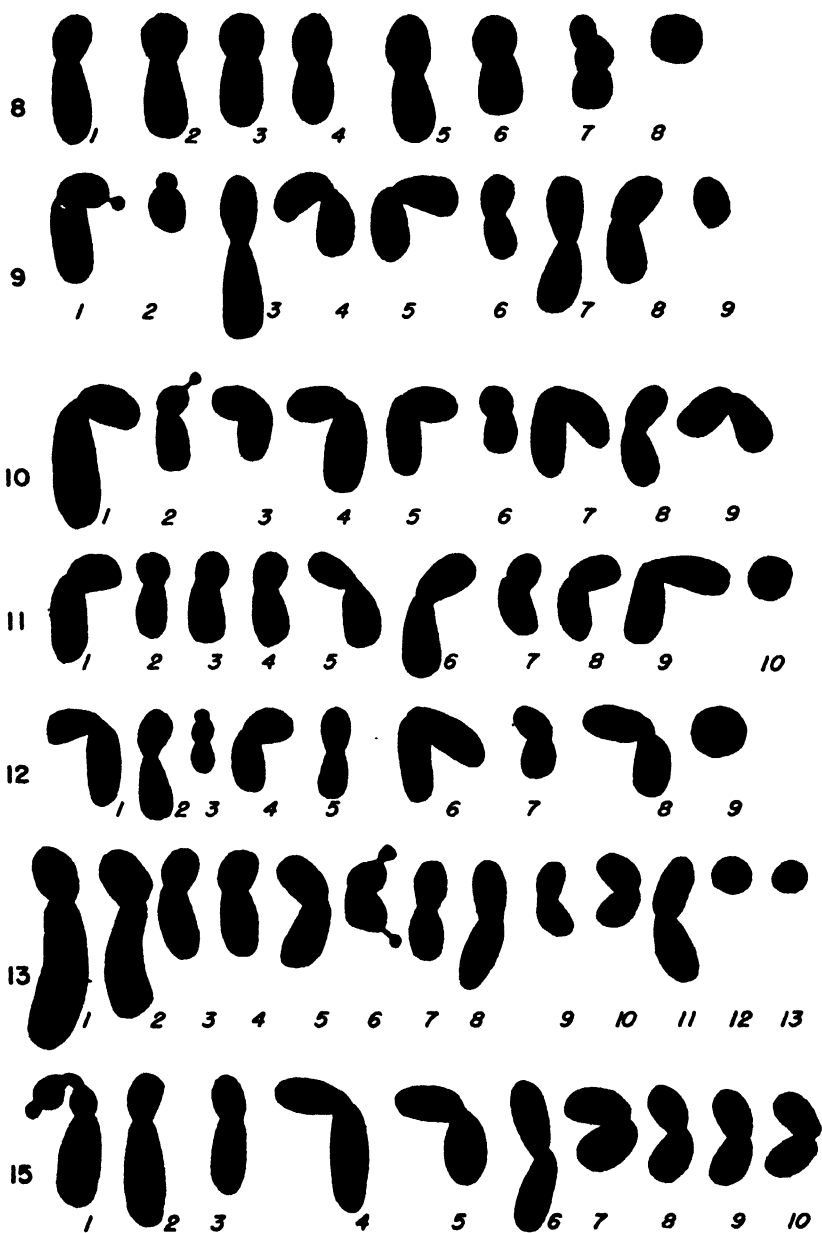 8
1 2 3 4 5 6 7 8
9
1 2 3 4 5 6 7 8 9
10
1 2 3 4 5 6 7 8 9
11
1 2 3 4 5 6 7 8 9 10
12
1 2 3 4 5 6 7 8 9
13
1 2 3 4 5 6 7 8 9 10 11 12 13
15
1 2 3 4 5 6 7 8 9 10